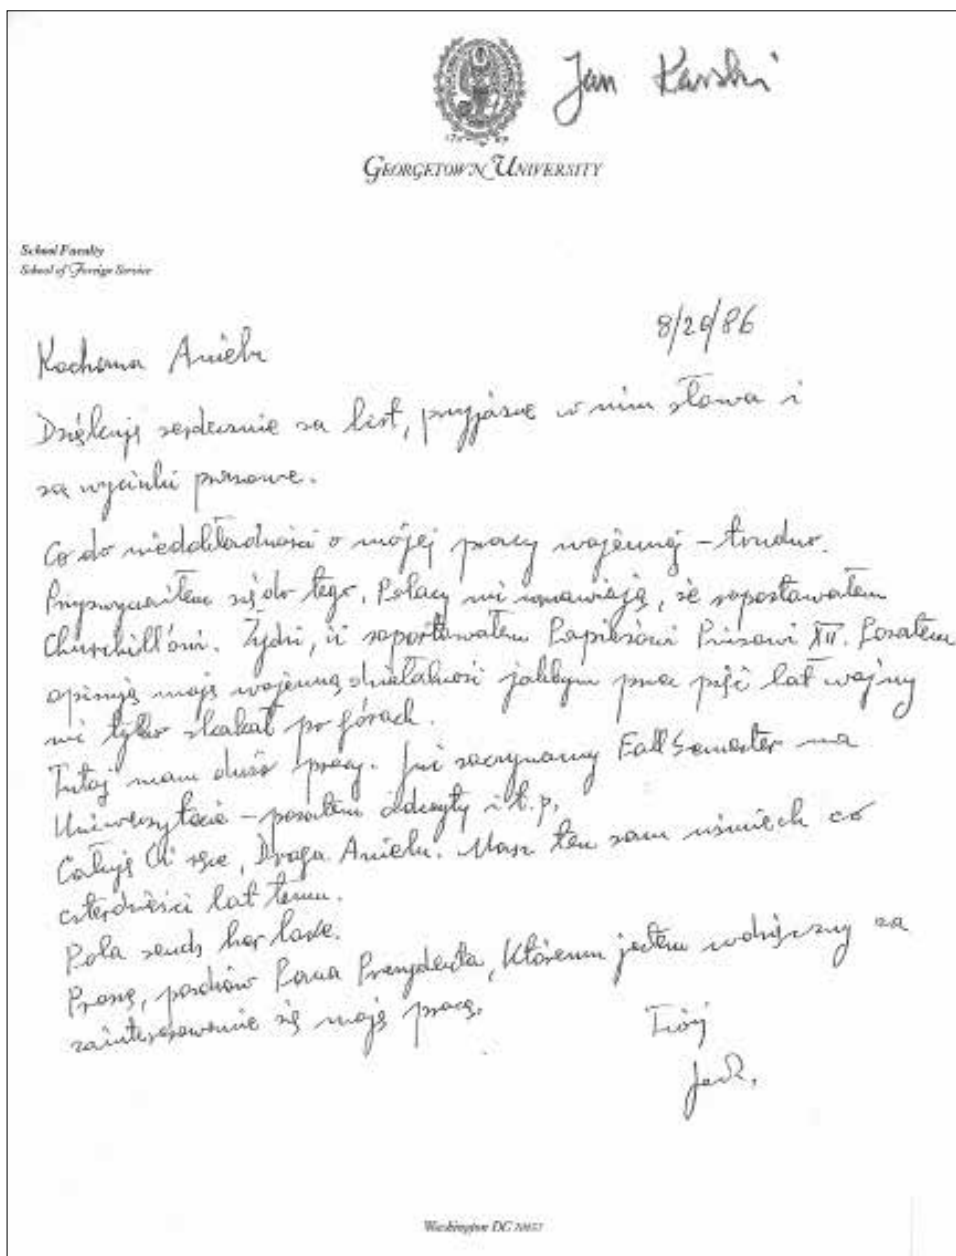 Jan Karski
GEORGETOWN UNIVERSITY
School Faculty
School of Foreign Service
8/20/86
Kochana Anielu
Dziękuję serdecznie za list, przyjazne w nim słowa i
za wycinki prasowe.
Co do niedokładności o mojej pracy wojennej – trudno.
Przyzwyczaiłem się do tego. Polacy mi wmawiają, że raportowałem
Churchill'owi. Żydzi, iż raportowałem Papieżowi Piusowi XII. Pozatem
opisują moją wojenną działalność jakbym przez pięć lat wojny
nic tylko skakał po górach.
Tutaj mam dużo pracy. Już zaczynamy Fall Semester na
Uniwersytecie – pozatem odczyty i t.p.
Całuję Ci ręce, Droga Anielu. Masz ten sam uśmiech co
czterdzieści lat temu.
Pola sends her love.
Proszę, pozdrów Pana Prezydenta, któremu jestem wdzięczny za
zainteresowanie się moją pracą.
Twój
Jan
Washington DC 20057